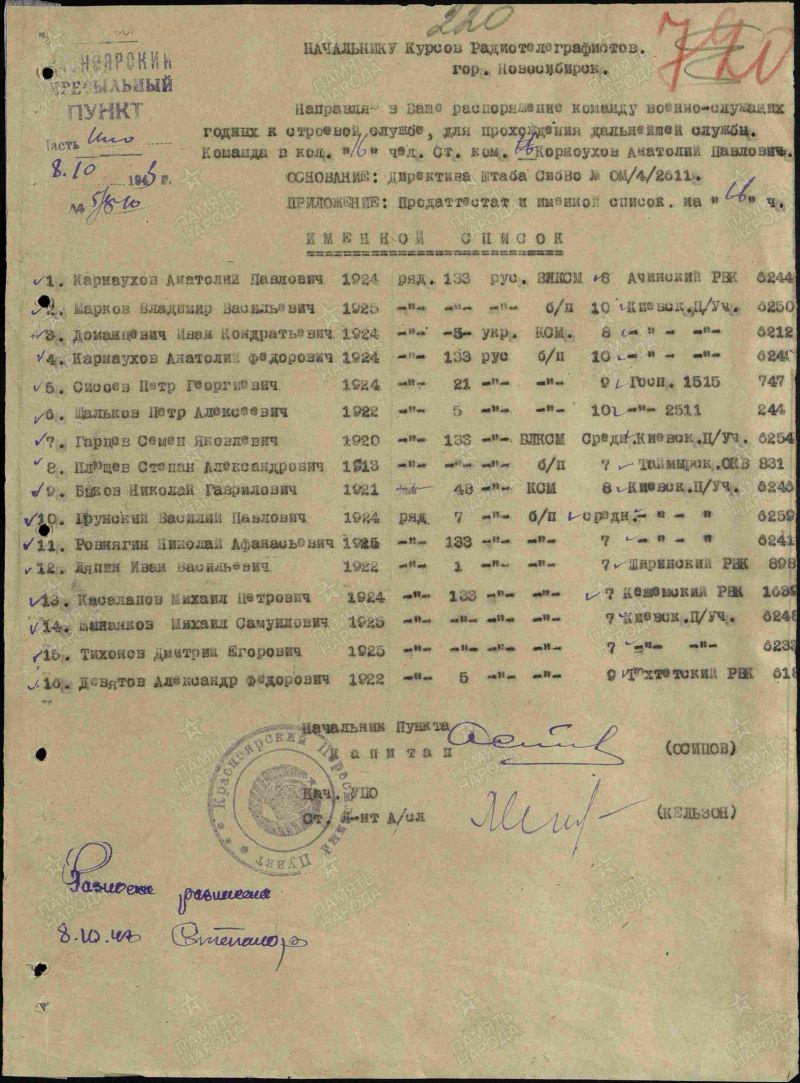 220
720
НАЧАЛЬНИКУ Курсов Радиотелеграфистов.
гор. Новосибирск.
ПУНКТ
Часть
8.10 194 г.
№
Направля в Ваше распоряжение команду военно-служащих
годных к строевой службе, для прохождения дальнейшей службы.
Команда в кол. "16" чел. Ст. ком. Карноухов Анатолий Павлович.
ОСНОВАНИЕ: Директива Штаба Сибво № ОМ/4/2611.
ПРИЛОЖЕНИЕ: Продаттестат и именной список. на "16" ч.
ИМЕННОЙ СПИСОК
1. Карнаухов Анатолий Павлович 1924 ряд. 133 рус. ВЛКСМ 8 Ачинский РВК 6244
2. Марков Владимир Васильевич 1925 -"- -"- -"- б/п 10 Киевск.П/Уч. 6250
3. Доманцевич Иван Кондратьевич 1924 -"- -5- укр. КСМ. 8 -"- -"- 6212
4. Карнаухов Анатолий Федорович 1924 -"- 133 рус б/п 10 -"- -"- 624
5. Сисоев Петр Георгиевич 1924 -"- 21 -"- -"- 9 Госп. 1515 747
6. Шальков Петр Алексеевич 1922 -"- 5 -"- -"- 10 -"- 2511 244
7. Гарцев Семен Яковлевич 1920 -"- 133 -"- ВЛКСМ Средн. Киевск.П/Уч. 6254
8. Плющев Степан Александрович 1913 -"- -"- -"- б/п 7 Таймырск.ОКВ 831
9. Быков Николай Гаврилович 1921 -"- 48 -"- КСМ 8 Киевск.П/Уч. 6246
10. Грунский Василий Павлович 1924 ряд 7 -"- б/п средн. -"- " 6259
11. Ровнягин Николай Афанасьевич 1925 -"- 133 -"- -"- 7 -"- " 6241
12. Ляпин Иван Васильевич 1922 -"- 1 -"- -"- 7 Ширинский РВК 898
13. Касалапов Михаил Петрович 1924 -"- 133 -"- -"- 7 Кежемский РВК 1639
14. Михаил Самуилович 1925 -"- -"- -"- -"- 7 Киевск.П/Уч. 6248
15. Тихонов Дмитрий Егорович 1925 -"- -"- -"- -"- 7 -"- -"- 6233
16. Девятов Александр Федорович 1922 -"- 5 -"- -"- 9 Тюхтетский РВК 618
Начальник Пункта
Капитан (ОСИПОВ)
Нач. УПО
Ст. Л-нт А/сл (КЕЛЬЗОН)
Красноярский Пересыльный Пункт
8.10.43